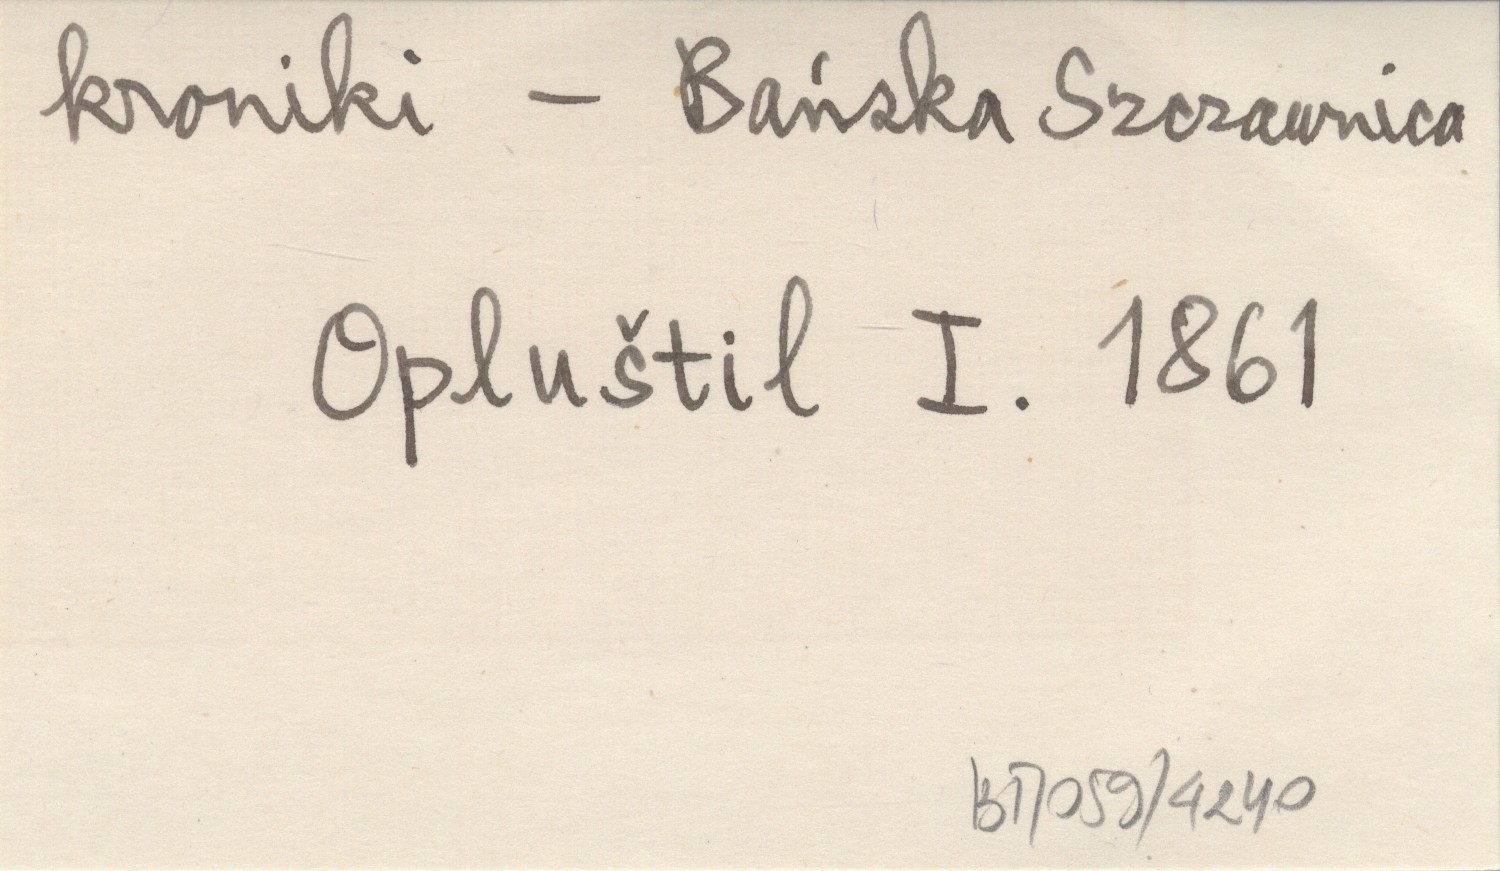 kroniki – Bańska Szczawnica
Opluštil I. 1861
BT/059/4240